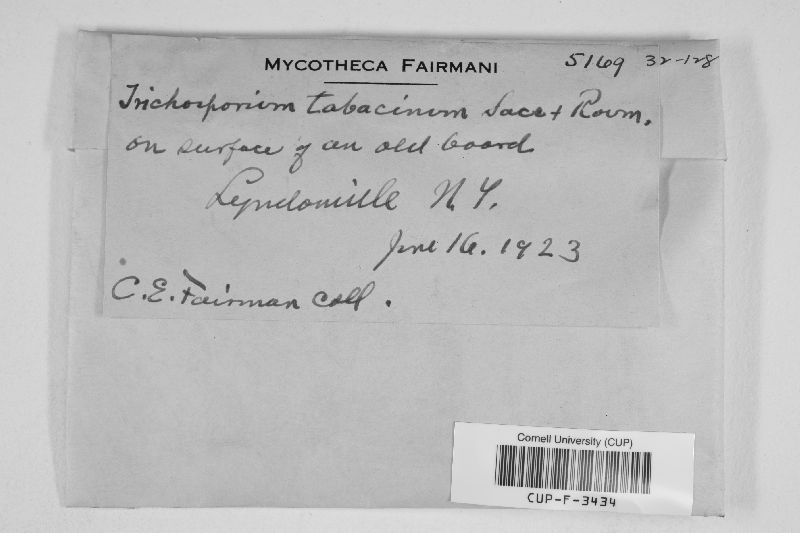 MYCOTHECA FAIRMANI
5169 32-128
Trichosporium tabacinum Sacc + Roum.
on surface of an old board
Lyndonville N.Y.
June 16. 1923
C.E. Fairman coll.
Cornell University (CUP)
CUP-F-3434